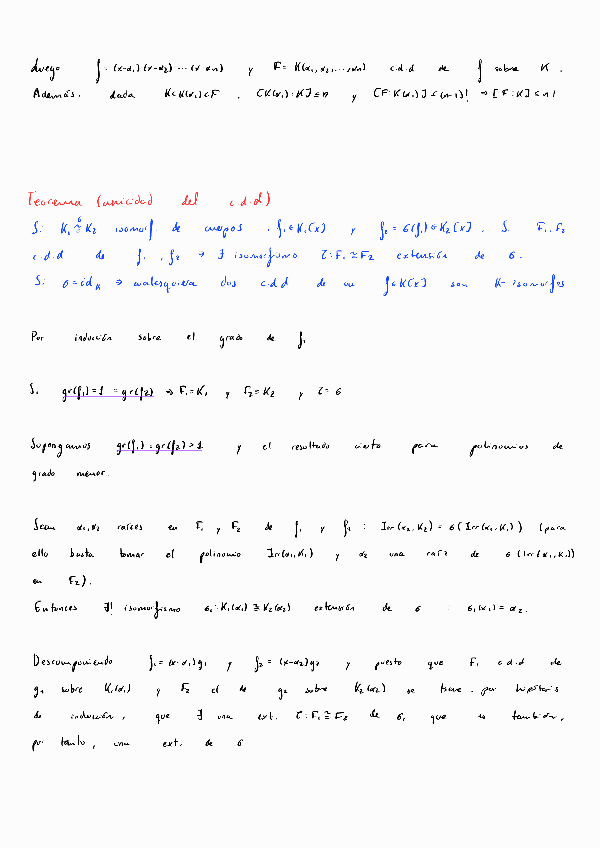 Luego f = (x-α₁)(x-α₂) ··· (x-αn) y F = K(α₁, α₂, ..., αn) c.d.d de f sobre K.
Además, dada K⊂K(α₁)⊂F, [K(α₁):K] ≤ n y [F:K(α₁)] ≤ (n-1)! ⇒ [F:K] ≤ n!
Teorema (unicidad del c.d.d)
Si K₁ ≅ᵟ K₂ isomorf. de cuerpos, f₁∈K₁[x] y f₂ = σ(f₁)∈K₂[x]. Si F₁, F₂
c.d.d de f₁, f₂ → ∃ isomorfismo τ: F₁ ≅ F₂ extensión de σ.
Si σ = id_K ⇒ cualesquiera dos c.d.d de un f∈K[x] son K-isomorfos
Por inducción sobre el grado de f₁
Si gr(f₁) = 1 = gr(f₂) ⇒ F₁ = K₁ y F₂ = K₂ y τ = σ
Supongamos gr(f₁) = gr(f₂) > 1 y el resultado cierto para polinomios de
grado menor.
Sean α₁, α₂ raíces en F₁ y F₂ de f₁ y f₂ : Irr(α₂, K₂) = σ(Irr(α₁, K₁)) (para
ello basta tomar el polinomio Irr(α₁, K₁) y α₂ una raíz de σ(Irr(α₁, K₁))
en F₂).
Entonces ∃! isomorfismo σ₁: K₁(α₁) ≅ K₂(α₂) extensión de σ : σ₁(α₁) = α₂.
Descomponiendo f₁ = (x-α₁)g₁ y f₂ = (x-α₂)g₂ y puesto que F₁ c.d.d de
g₁ sobre K₁(α₁) y F₂ el de g₂ sobre K₂(α₂) se tiene, por hipótesis
de inducción, que ∃ una ext. τ: F₁ ≅ F₂ de σ₁ que es también,
por tanto, una ext. de σ